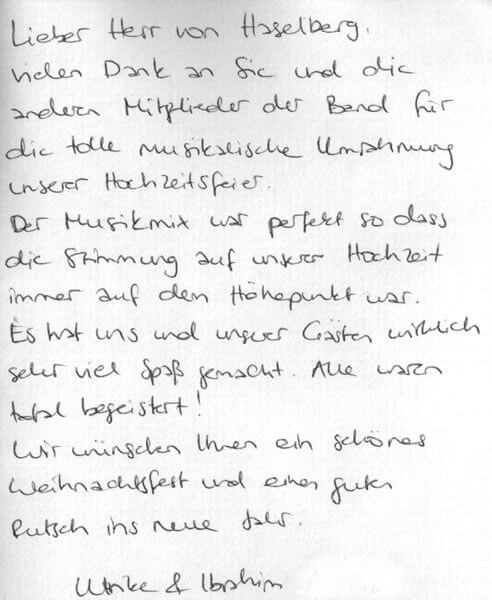 Lieber Herr von Haselberg,
vielen Dank an Sie und die
andern Mitglieder der Band für
die tolle musikalische Umrahmung
unserer Hochzeitsfeier.
Der Musikmix war perfekt so dass
die Stimmung auf unserer Hochzeit
immer auf dem Höhepunkt war.
Es hat uns und unseren Gästen wirklich
sehr viel Spaß gemacht. Alle waren
total begeistert!
Wir wünschen Ihnen ein schönes
Weihnachtsfest und einen guten
Rutsch ins neue Jahr.
Ulrike & Ibrahim